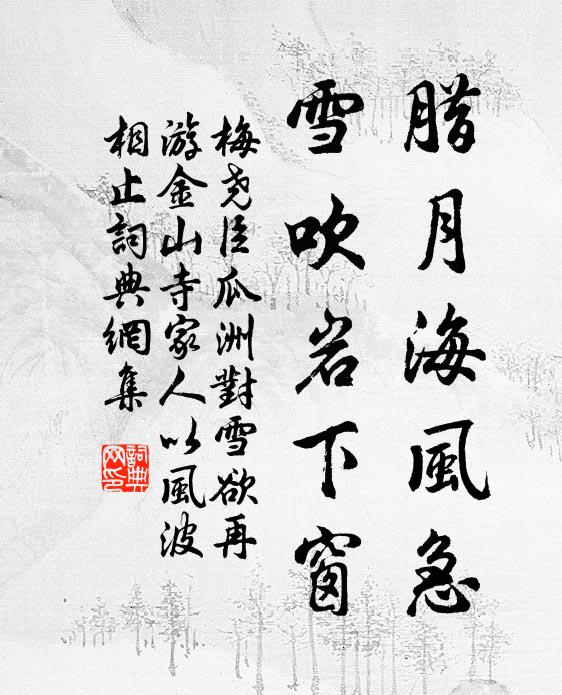 腊月海風急
雪吹岩下窗
梅尧臣瓜洲對雪欲再
游金山寺家人以風波
相止詞典網集
詞典
网印